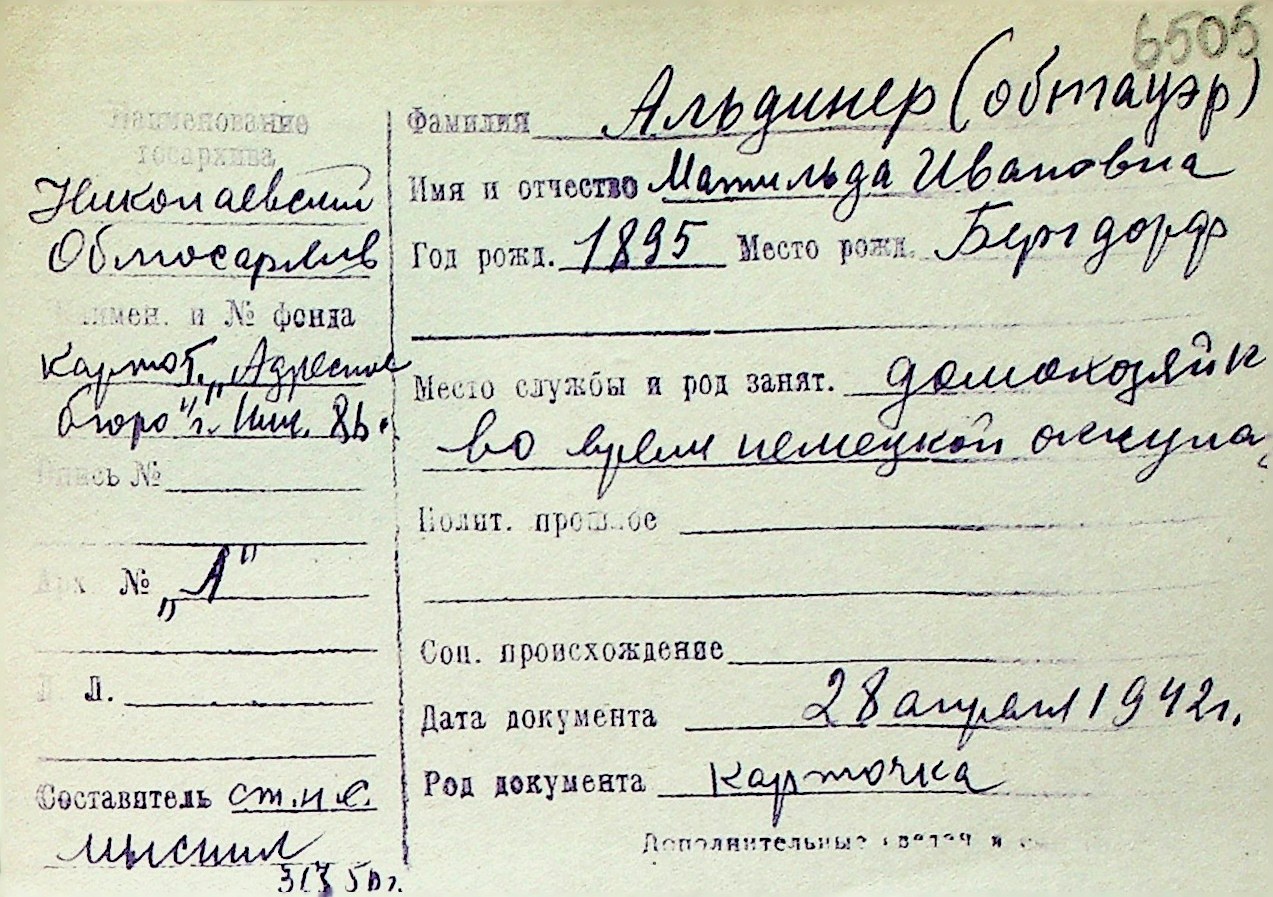 6505
Наименование
госархива
Николаевский
Облгосархив
Наимен. и № фонда
Картот. „Адресное
бюро" г.
Опись №
Арх №
„А"
Л. Л.
Составитель ст. н. с.
50 г.
Фамилия Альдинер (обтауэр)
Имя и отчество Матильда Ивановна
Год рожд. 1895 Место рожд. Бергдорф
Место службы и род занят. домохозяйк
во время немецкой оккупа
Полит. прошлое
Соц. происхождение
Дата документа 28 апреля 1942 г.
Род документа карточка
Дополнительные сведен и